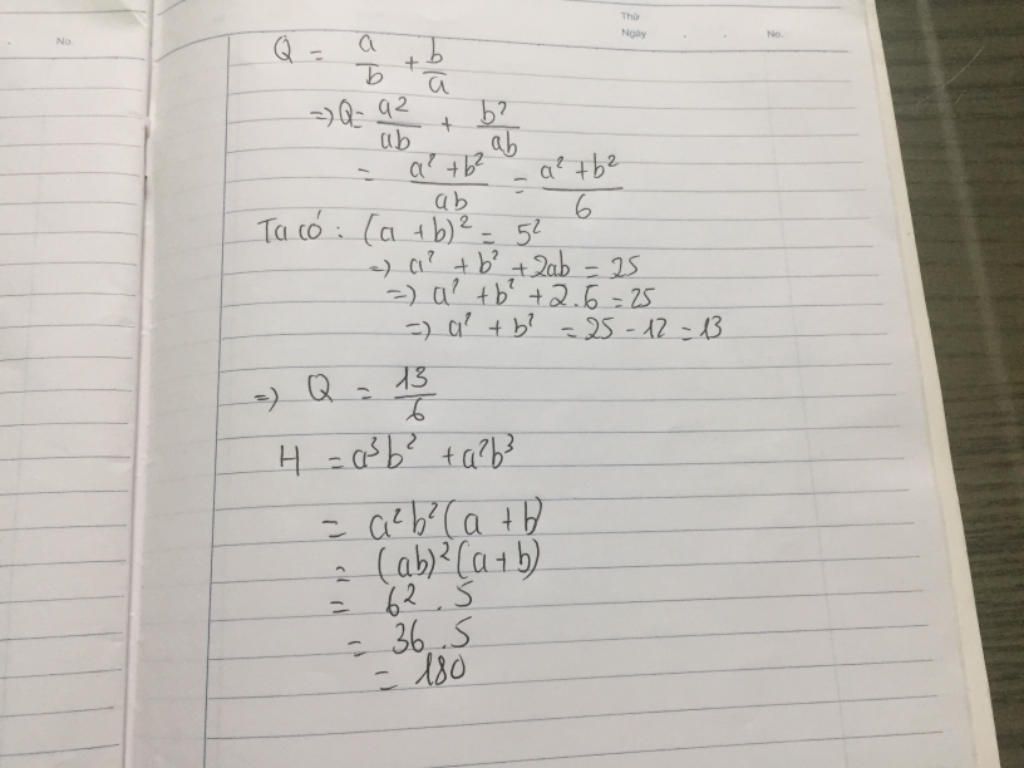 No.
Thứ
Ngày . . No.
Q = a/b + b/a
=> Q = a²/ab + b²/ab
= (a² + b²)/ab = (a² + b²)/6
Ta có : (a + b)² = 5²
=> a² + b² + 2ab = 25
=> a² + b² + 2.6 = 25
=> a² + b² = 25 - 12 = 13
=> Q = 13/6
H = a³b² + a²b³
= a²b²(a + b)
= (ab)²(a + b)
= 6² . 5
= 36 . 5
= 180